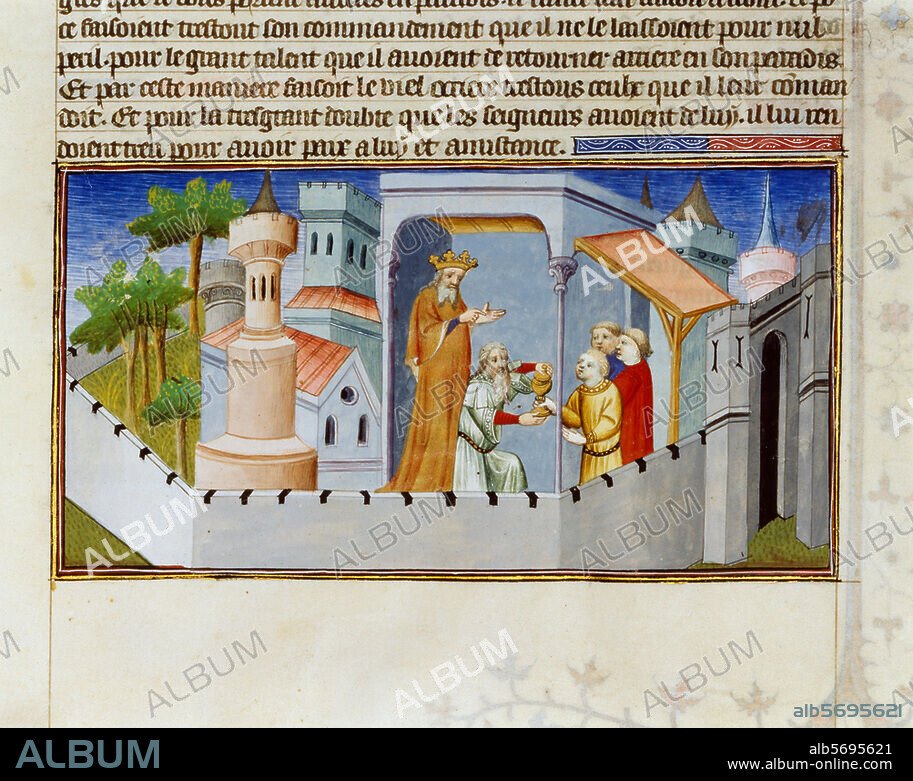 ce faisoient trestout son commandement que il ne le laissoient pour nul
peril. pour le grant talent que il auoient de retourner arriere en son paradis.
Et par ceste maniere faisoit le viel occirre trestous ceulx que il leur coman
doit. Et pour la tresgrant doubte que les seigneurs auoient de luy. il lui ren
doient treu pour auoir paix a luy et amistance.
ALBUM
alb5695621
ALBUM
alb5695621
www.album-online.com